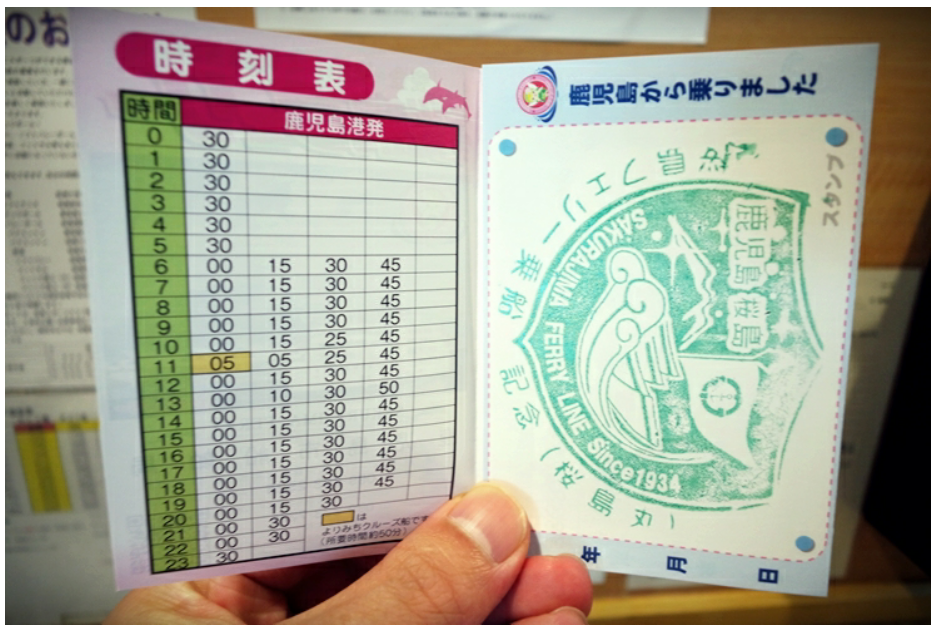 のお
時刻表
時間 鹿児島港発
0 30
1 30
2 30
3 30
4 30
5 30
6 00 15 30 45
7 00 15 30 45
8 00 15 30 45
9 00 15 30 45
10 00 15 25 45
11 05 05 25 45
12 00 15 30 45
13 00 10 30 50
14 00 15 30 45
15 00 15 30 45
16 00 15 30 45
17 00 15 30 45
18 00 15 30 45
19 00 15 30
20 00 30
21 00 30
22 00
23 30
は
よりみちクルーズ船です
(所要時間約50分)
鹿児島から乗りました
スタンプ
桜島フェリー乗船記念(桜島丸)
鹿児島 桜島
SAKURAJIMA FERRY LINE Since1934
年 月 日